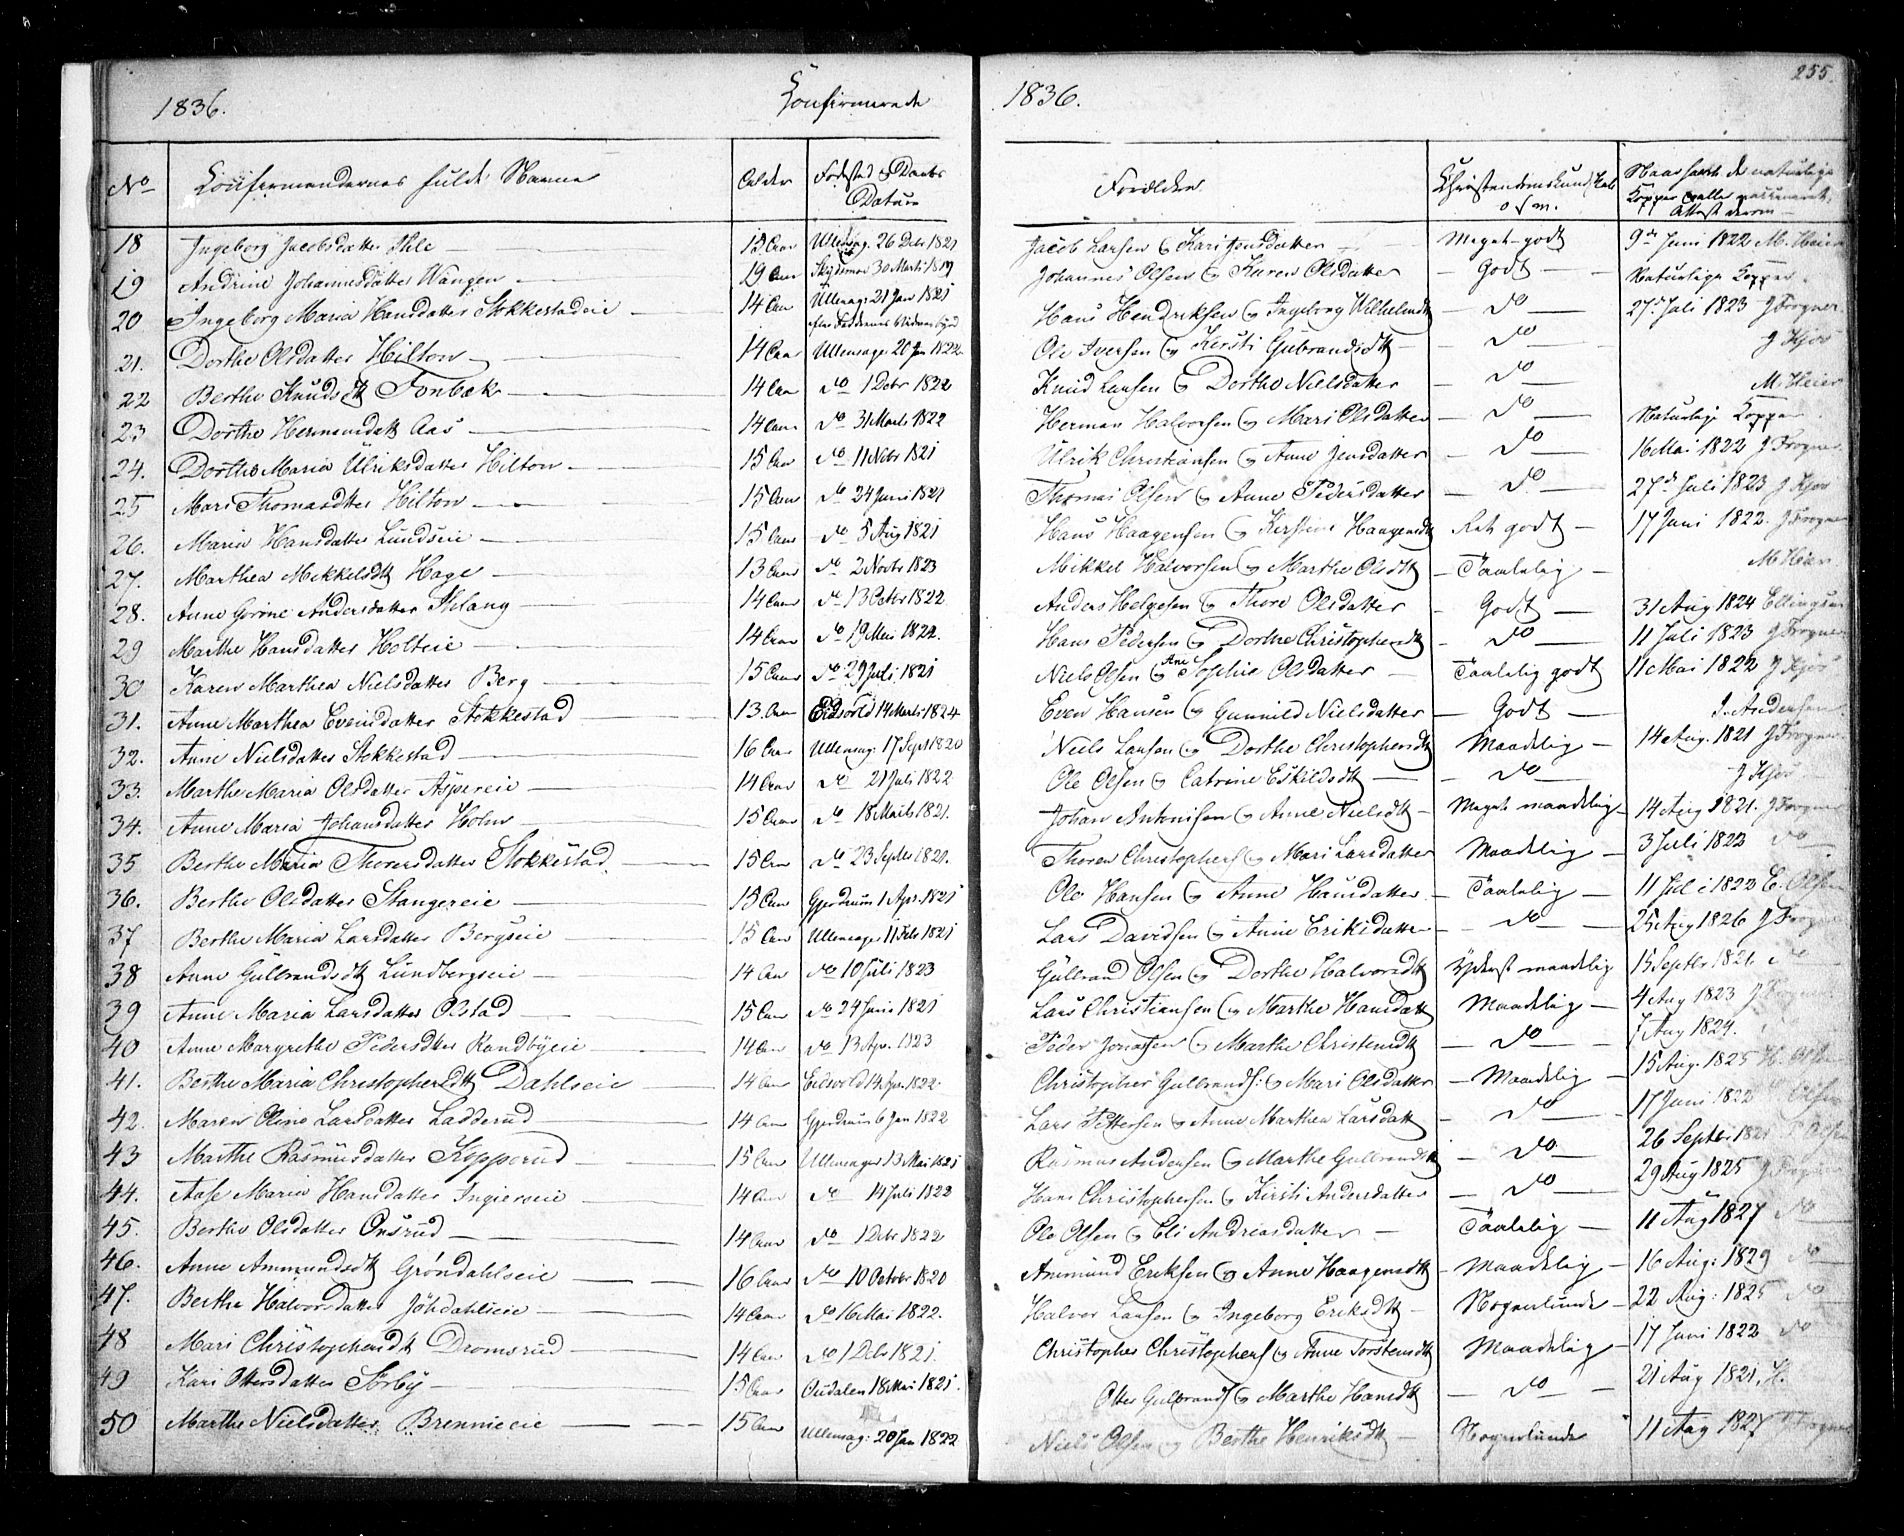 255.
1836. Confirmerede 1836.
No Confirmandernes fulde Navne Alder Fødested & Daabs Datum Forældre Christendomskundskab o s v. Naar havte de naturlige Kopper eller vaccineret, Attest derom
18 Ingeborg Jacobsdatter Ihle 15 Aar Ullensag. 26 Debr 1821 Jacob Larsen & Kari Jonsdatter Meget godt 9de Juni 1822 M. Heier
19 Andrine Johannesdatter Wangen 19 Aar 30 Marti 1819 Johannes Olsen & Karen Olsdatter Godt Naturlige Kopper
20 Ingeborg Maria Hansdatter Stokkestadeie 14 Aar Ullensag: 21 Jan 1821 Hans Hendriksen & Ingeborg Wilhelmdtt do 27de Juli 1823 J Frogner
21. Dorthe Olsdatter Hilton 14 Aar Ullensage 20 Jan 1822 Ole Iversen & Kersti Gubrandsdtt do J Kjos
22 Berthe Knudsdtt Tonbæk 14 Aar do 1 Debr 1822 Knud Larsen & Dorthe Nielsdatter do M. Heier
23 Dorthe Hermansdatt Aas 14 Aar do 31 Marts 1822 Herman Halvorsen & Mari Olsdatter do Naturlige Kopper
24. Dorthe Maria Ulriksdatter Hilton 15 Aar do 11 Nobr 1821 Ulrik Christiansen & Anne Jensdatter do 16 Mai 1822 J Frogner
25 Mari Thomasdtter Hilton 15 Aar do 24 Juni 1821 Thomas Olsen & Anne Pedersdatter do 27de Juli 1823 J Kjos
26. Maria Hansdatter Lundseie 15 Aar do 5 Aug 1821 Hans Haagensen & Kirstine Haagensdtt Ret godt 17 Juni 1822. J Frogner
27. Marthea Mikkelsdtt Hage 13 Aar do 2 Novbr 1823 Mikkel Halvorsen & Marthe Olsdtt Taalelig M Heier
28. Anne Gorine Andersdatter Skelang 14 Aar do 13 Octbr 1822 Anders Helgesen & Thore Olsdatter Godt 31 Aug 1824 Ellingsen
29 Marthe Hansdatter Holteie 14 Aar do 19 Mai 1822. Hans Pedersen & Dorthe Christophersdtt do 11 Juli 1823 J Frogner
30 Karen Marthea Nielsdatter Berg 15 Aar do 29 Juli 1821 Niels Olsen & Ane Sophie Olsdatter Taalelig godt 11 Mai 1822 J Kjos
31. Anne Marthea Evensdatter Stokkestad 13 Aar Eidsvold 14 Marti 1824 Even Hansen & Gunnild Nielsdatter Godt J. Andersen
32. Anne Nielsdatter Stokkestad 16 Aar Ullensag: 17 Sept 1820 Niels Larsen & Dorthe Christophersdtt Maadelig 14 Aug. 1821 J Frogner
33. Marthe Maria Olsdatter Aspereie 14 Aar do 21 Juli 1822 Ole Olsen & Catrine Eskildsdtt do J Kjos
34. Anne Maria Johansdatter Holm 15 Aar do 18 Marts 1821. Johan Antonisen & Anne Nielsdtt Meget maadelig 14 Aug 1821. J Frogner
35 Berthe Maria Thorersdatter Stokkestad 15 Aar do 23 Septbr 1821. Thoren Christophers & Mari Larsdatter Maadelig 3 Juli 1822 do
36. Berthe Olsdatter Stangereie 15 Aar Gjerdrum 1 Apr. 1821 Ole Hansen & Anne Hansdatter Taalelig 11 Juli 1822 C. Olsen
37 Berthe Maria Larsdatter Bergseie 15 Aar Ullensager 11 Feb 1821 Lars Davidsen & Anne Eriksdatter do 25 Aug 1826 J Frogner
38 Anne Gulbrandsdtt Lundbergseie 14 Aar do 10 Juli 1823 Gulbrand Olsen & Dorthe Halvorsdtt Yderst maadelig 15 Septbr 1821. do
39 Anne Maria Larsdatter Olstad 15 Aar do 24 Juni 1821 Lars Christiansen & Marthe Hansdatt Maadelig 4 Aug 1823 J Frogner
40 Anne Margrethe Pedersdtter Randbyeie 14 Aar do 13 Apr. 1823 Peder Jonassen & Marthe Christensdtt do 7 Aug 1824.
41. Berthe Maria Christophersdtt Dahlseie 14 Aar Eidsvold 14 Apr. 1822. Christopher Gulbrands: & Mari Olsdatter Maadelig 15 Aug. 1825 H. Olsen
42. Maren Oline Larsdatter Ladderud 14 Aar Gjerdrum 6 Jan 1822 Lars Pettersen & Anne Marthea Larsdatt do 17 Juni 1822 Olsen
43 Marthe Rasmusdatter Kopperud 15 Aar Ullensager 13 Mai 1821 Rasmus Andersen & Marthe Gulbrandsdtt do 26 Septbr 1821 Olsen
44. Aase Maria Hansdatter Ingiereie 14 Aar do 14 Juli 1822 Hans Christophersen & Kirsti Andersdatter do 29 Aug 1825 J Frogner
45. Berthe Olsdatter Onsrud 14 Aar do 1 Debr 1822 Ole Olsen & Eli Andreasdatter Taalelig 11 Aug 1827 do
46. Anne Ammundsdtt Gröndahlseie 16 Aar do 10 Octobr 1820 Ammund Eriksen & Anne Haagensdtt Maadelig 16 Aug: 1829 do
47. Berthe Halvorsdatter Jöhdahlseie 14 Aar do 16 Mai 1822. Halvor Larsen & Ingeborg Eriksdtt Nogenlunde 22 Aug: 1825 do
48 Mari Christophersdt Dromsrud 14 Aar do 1 Debr 1821. Christopher Christophers & Anne Torstensdtt Maadelig 17 Juni 1822 do
49 Kari Ottersdatter Sørby 15 Aar Ourdalen 18 Mai 1821. Otter Gulbrands & Marthe Hansdtt do 21 Aug 1821. H.
50 Marthe Nielsdatter Brennieeie 15 Aar Ullensag: 20 Jan 1822 Niels Olsen & Berthe Henriksdtt Nogenlunde 11 Aug 1827 Frogner